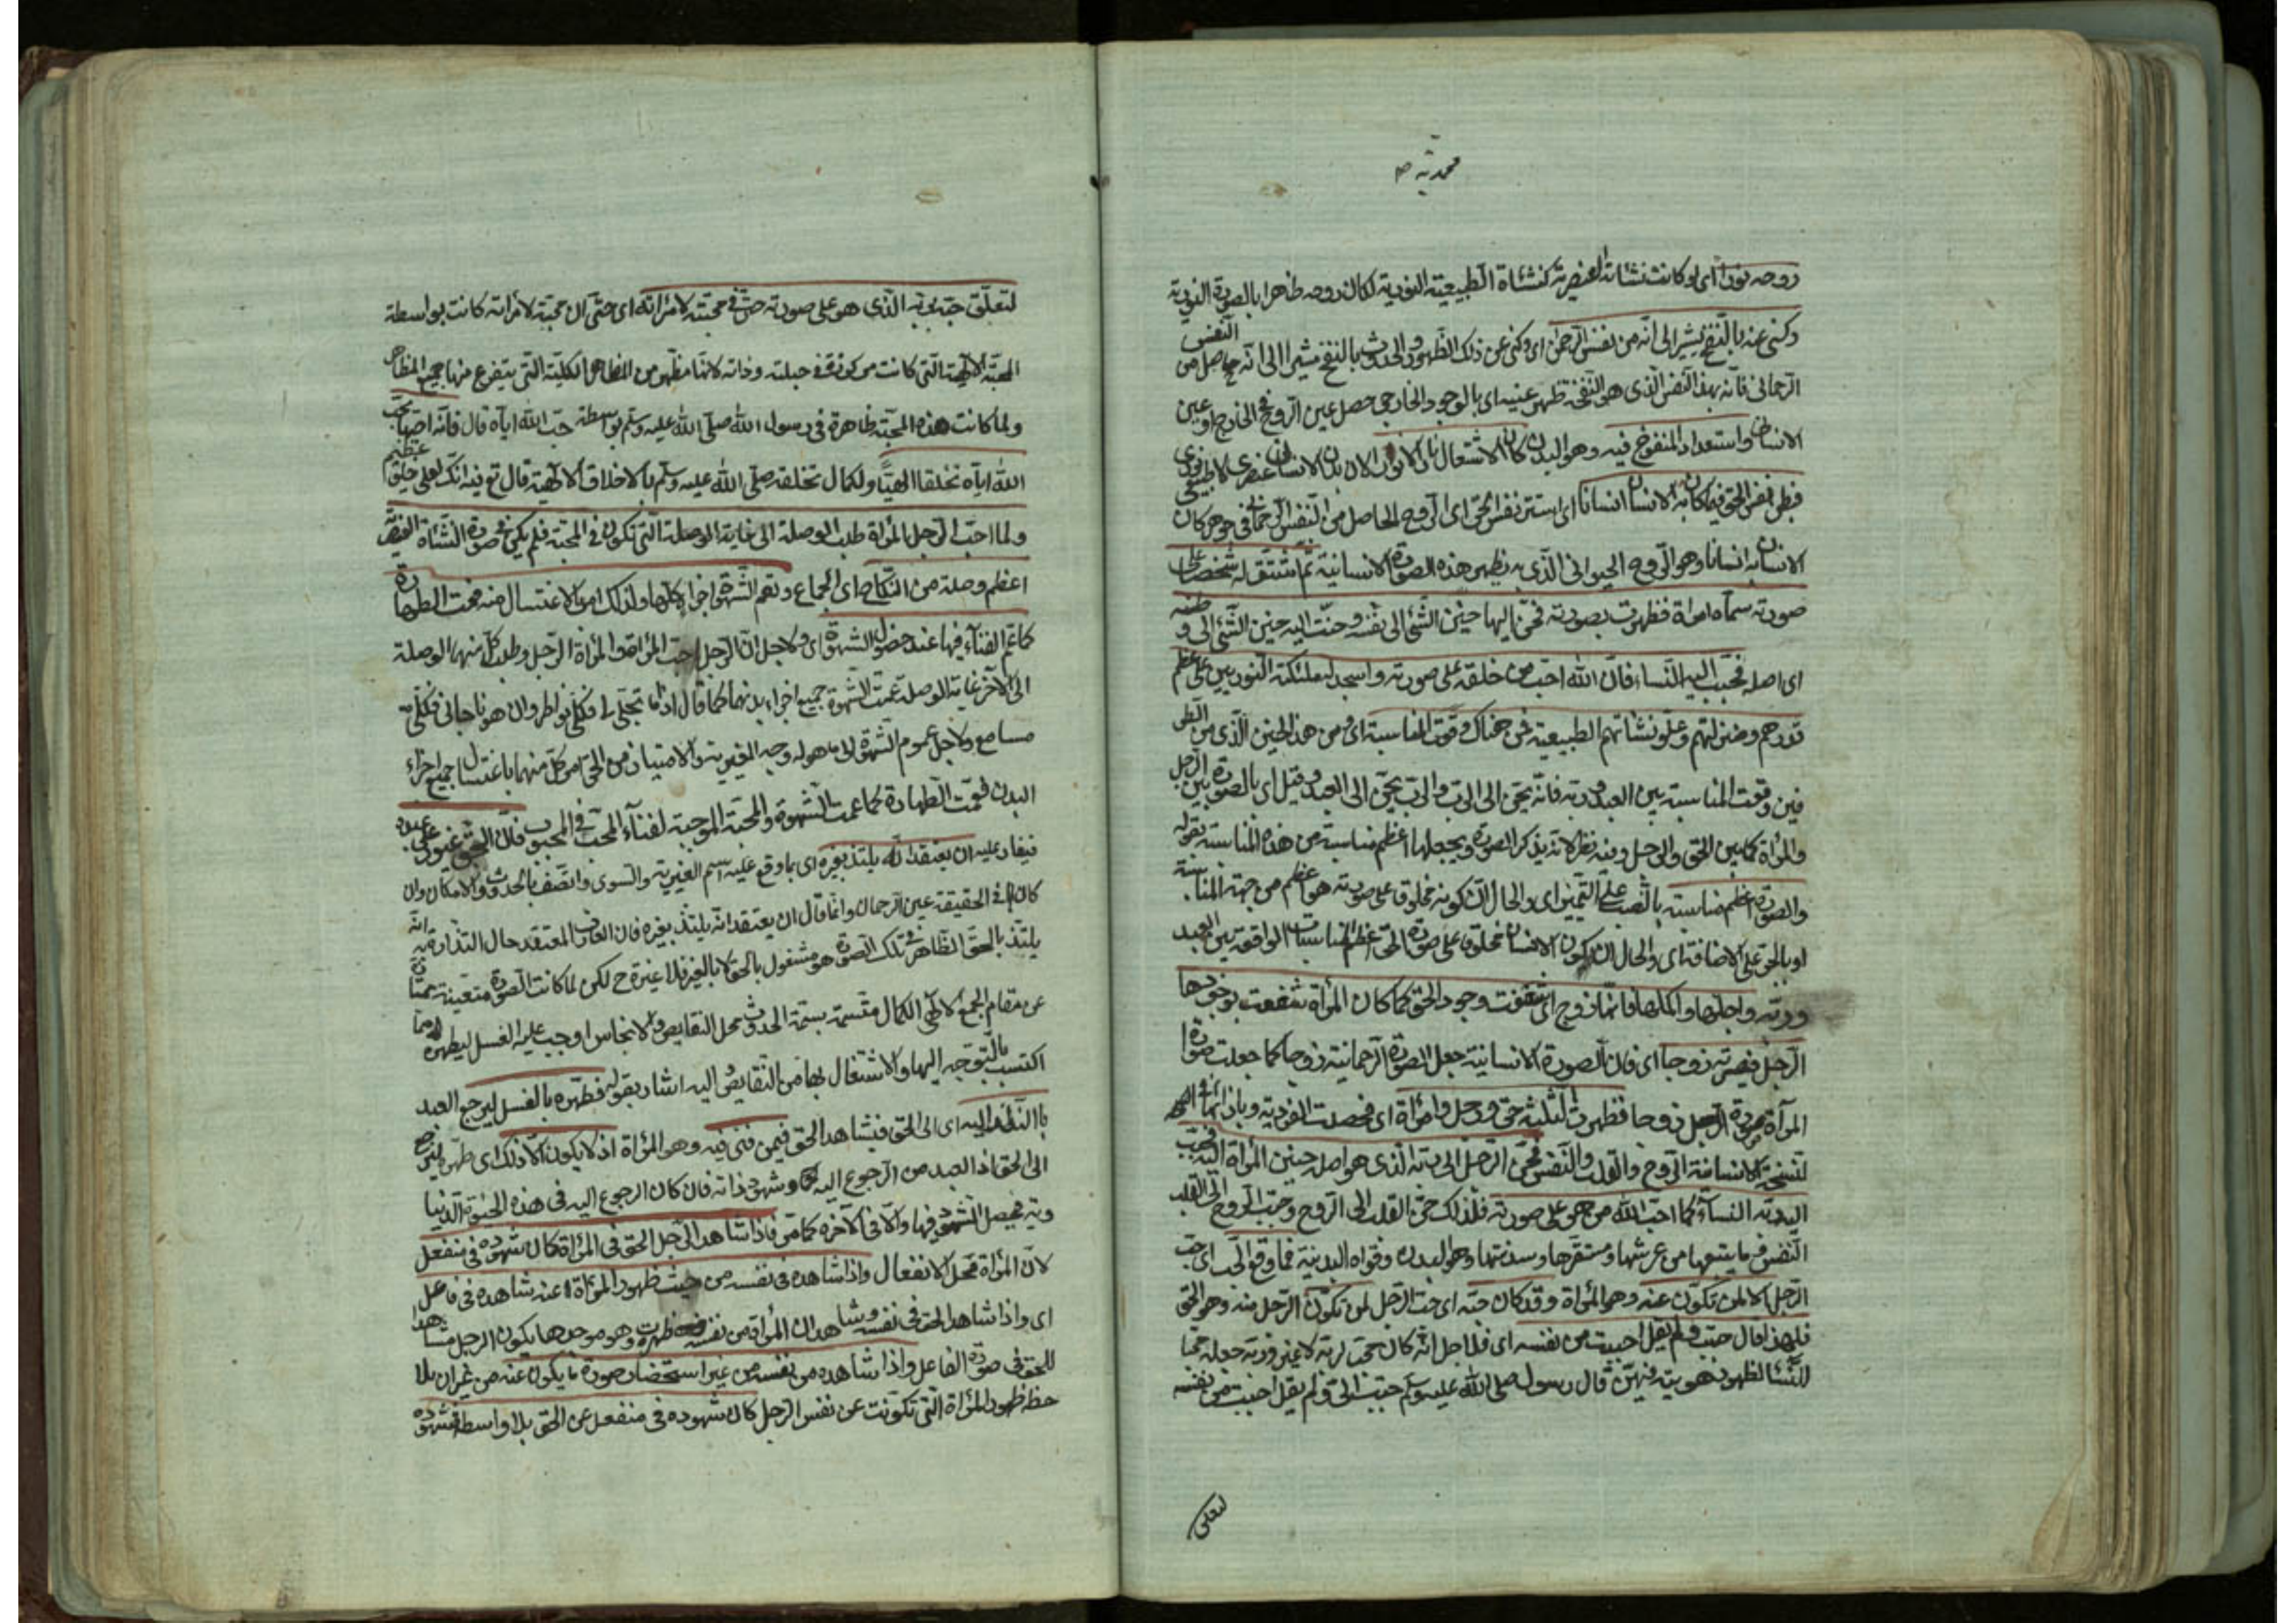 محمدية
روحه نورا اى لو كانت نشأته العنصرية كنشأة الطبيعية النورية لكان روحه ظاهرا بالصورة النورية
وكنى عنه بالنفخ يشير الى انه من نفس الرحمن اى وكنى عن ذلك الظهور والحدوث بالنفخ مشيرا الى انه حاصل من النفس
الرحمانى فانه بهذا النفس الذى هو النفخة ظهر عينه اى بالوجود الخارجى حصل عين الروح فى الخارج او عين
الانسان واستعداد المنفوخ فيه وهو البدن كان الاشتعال نارا لا نورا لان بدن الانسان عنصرى لا طبيعى نورى
فبطن نفس الحق فيما كان به الانسان انسانا اى استتر نفس الحق اى الروح الحاصل من النفس الرحمانى فى جوهر كان
الانسان به انسانا وهو الروح الحيوانى الذى به يظهر هذه الصورة الانسانية ثم اشتق له شخصا على
صورته سماه امراة فظهرت بصورته فحن اليها حنين الشئ الى نفسه وحنت اليه حنين الشئ الى وطنه
اى اصله فحبب اليه النساء فان الله احب من خلقه على صورته واسجد له ملئكته النوريين على عظم
قدرهم ومنزلتهم وعلو نشأتهم الطبيعية فمن هناك وقعت المناسبة اى ومن هذا الحنين الذى من الطر
فين وقعت المناسبة بين العبد وربه فانه يحن الى الرب والرب يحن الى العبد وقيل اى بالصورة بين الرجل
والمرأة كما بين الحق والرجل وفيه نظر لانه يذكر الصورة ويجعلها اعظم مناسبة من هذه المناسبة بقوله
والصورة اعظم مناسبة بالنصب على التمييز اى والحال ان كونه مخلوقا على صورته هو اعظم من جهة المناسبة
او بالجر على الاضافة اى والحال ان كون الانسان مخلوقا على صورة الحق اعظم المناسبات الواقعة بين العبد
وربه واجلها واكملها فانها زوج اى شفعت وجود الحق كما كان المرأة شفعت بوجودها
الرجل فصيرته زوجا اى فان الصورة الانسانية جعل الصورة الرحمانية زوجا كما جعلت صورة
المرأة صورة الرجل زوجا فظهرت الثلثة حق ورجل وامرأة اى فحصلت الفردية
لنسخة الانسانية الروح والقلب والنفس فحن الرجل الى ربه الذى هو اصله حنين المرأة اليه فحبب
اليه ربه النساء كما احب الله من هو على صورته فلذلك حن القلب الى الروح وحبب الروح الى القلب
النفس وما يتبعها من عرشها ومستقرها وسدنتها وهو البدن وقواه البدنية فما وقع الحب اى حب
الرجل الا لمن تكون عنه وهو المرأة وقد كان حبه اى حب الرجل لمن تكون الرجل منه وهو الحق
فلهذا قال حبب ولم يقل احببت من نفسه اى فلاجل انه كان محبا لربه لا غير وربه جعله محبا
للنساء لظهور هويته فيهن قال رسول الله صلى الله عليه وسلم حبب الى ولم يقل احببت من نفسه
لتعلق
لتعلق حبه بربه الذى هو على صورته حتى فى محبته لامرأته اى حتى ان محبته لامرأته كانت بواسطة
المحبة الالهية التى كانت مركوزة فى جبلته وذاته لانها مظهر من المظاهر الكلية التى يتفرع منها جميع المظاهر
ولما كانت هذه المحبة ظاهرة فى رسول الله صلى الله عليه وسلم بواسطة حب الله اياه قال فانه احبها بحب
الله اياه تخلقا الهيا ولكمال تخلقه صلى الله عليه وسلم بالاخلاق الالهية قال تع فيه انك لعلى خلق عظيم
ولما احب الرجل المرأة طلب الوصلة الى غاية الوصلة التى تكون فى المحبة فلم يكن فى صورة النشأة العنصرية
اعظم وصلة من النكاح اى الجماع وتعم الشهوة اجزاءه كلها ولذلك امر بالاغتسال منه فعمت الطهارة
كما عم الفناء فيها عند حصول الشهوة اى ولاجل ان الرجل احب المرأة والمرأة الرجل وطلب كل منهما الوصلة
الى الاخر غاية الوصلة عمت الشهوة جميع اجزاء بدنهما كما قال اذا ما تجلى لى فكلى نواظر وان هو ناجانى فكلى
مسامع ولاجل عموم الشهوة الى ما هو له وجه الغيرية والامتياز من الحق امر كل منهما باغتسال جميع اجزاء
البدن فعمت الطهارة كما عمت الشهوة والمحبة الموجبة لفناء المحب فى المحبوب فان الحق غيور على عبده
فيغار عليه ان يعتقد انه يلتذ بغيره اى بما وقع عليه اسم الغيرية والسوى واتصف بالحدوث والامكان وان
كان فى الحقيقة عين الرحمان وانما قال ان يعتقد انه يلتذ بغيره فان العارف المعتقد حال التذاذه به انه
يلتذ بالحق الظاهر فى تلك الصورة هو مشغول بالحق لا بالغير فلا غيرة ح لكن لما كانت الصورة متعينة ممتازة
عن مقام الجمع الالهى الكمال متسمة بسمة الحدوث محل النقايص والانجاس اوجب عليه الغسل ليطهره مما
اكتسب بالتوجه اليها والاشتغال بها من النقايص اليه اشار بقوله فطهره بالغسل ليرجع العبد
بالنظر اليه اى الى الحق فيشاهد الحق فيمن فنى فيه وهو المرأة اذ لا يكون الا ذلك اى طهره ليرجع
الى الحق اذ لا بد للعبد من الرجوع اليه وشهود ذاته فان كان الرجوع اليه فى هذه الحيوة الدنيا
وبه يحصل الشهود فيها والا فى الآخرة كما مر فاذا شاهد الرجل الحق فى المرأة كان شهوده فى منفعل
لان المرأة محل الانفعال واذا شاهده فى نفسه من حيث ظهور المرأة عنه شاهده فى فاعل
اى واذا شاهد الحق فى نفسه وشاهد ان المرأة من نفسه ظهرت وهو موجدها يكون الرجل مشاهدا
للحق فى صورة الفاعل واذا شاهده من نفسه من غير استحضار صورة ما يكون عنه من غير ان يلا
حظ ظهور المرأة التى تكونت عن نفس الرجل كان شهوده فى منفعل عن الحق بلا واسطة فشهوده